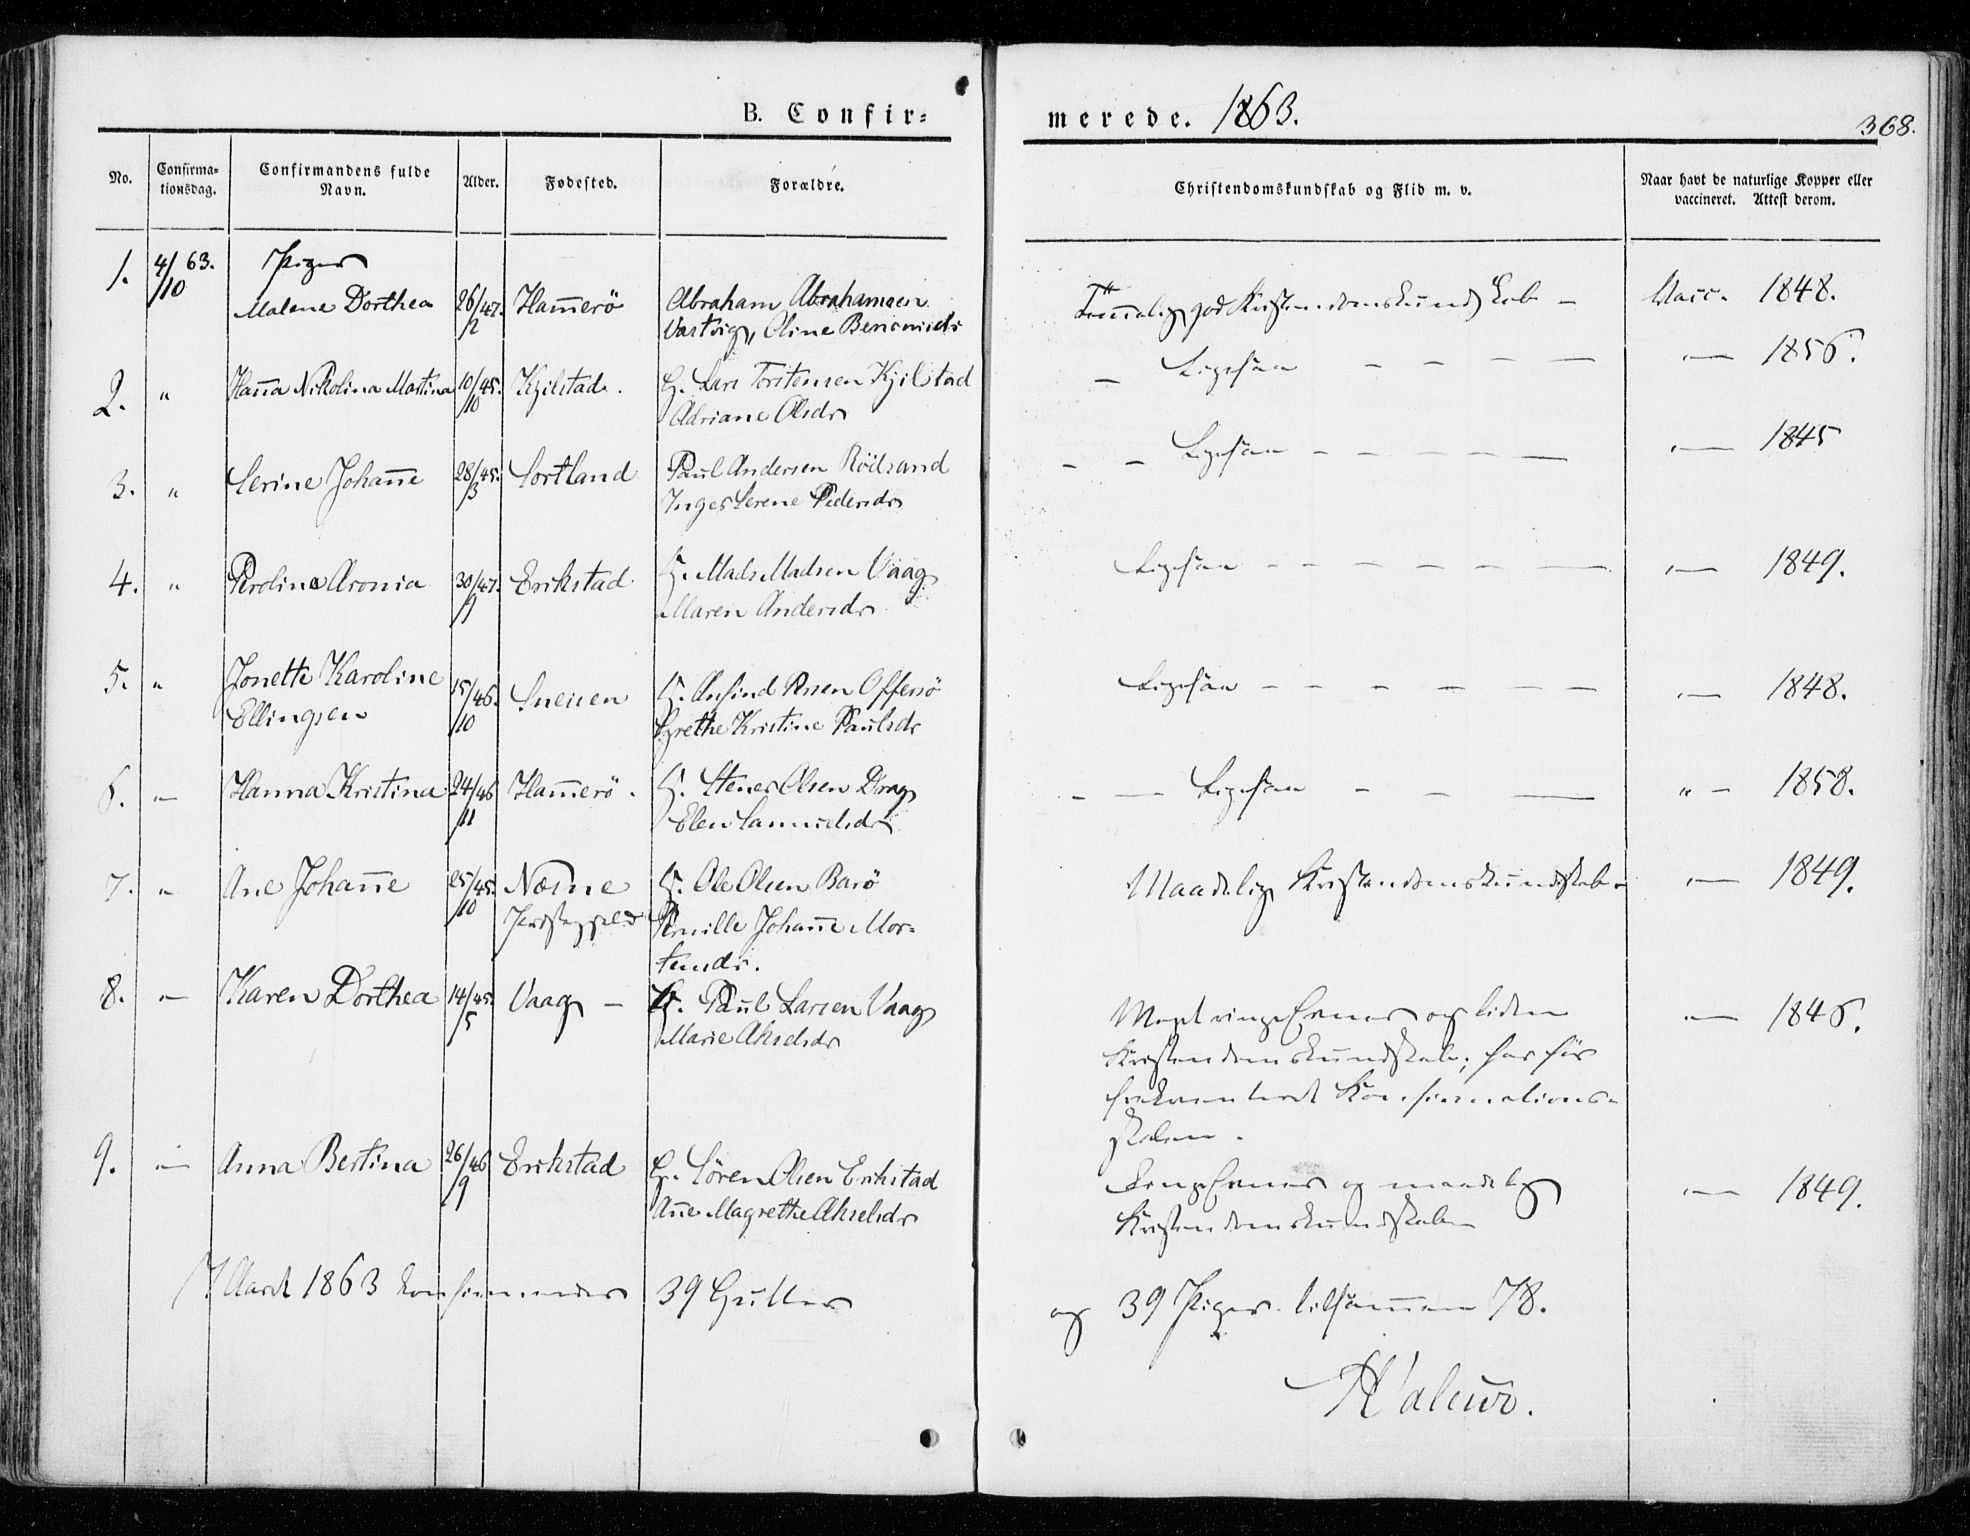 B. Confir=
merede. 1863.
368.
No.
Confirma=
tionsdag.
Confirmandens fulde
Navn.
Alder.
Fødested.
Forældre.
Christendomskundskab og Flid m. v.
Naar havt de naturlige Kopper eller
vaccineret. Attest derom.
Piger
1. 4/10 63. Malene Dorthea 26/2 47. Ham̄erö Abraham Abrahamsen
Vastvig, Oline
Tem̄elig god Kristendomskundskab – Vacc. 1848.
2. " Han̄a Nikolina Martina 10/10 45. Kjilstad. G. Lars Torstensen Kjilstad
Adriane Olsdr
– Ligesaa – – – — — 1856.
3. " Serine Johan̄e 28/3 45. Sortland Paul Andersen Rödsand
Inger Serene Pedersdr
– – Ligesaa – – – – – — — 1845
4. " Peroline Aronia 30/9 47. Erikstad G. Mads Madsen Vaag
Maren Andersdr
Ligesaa – – – – – — — 1849.
5. " Jonette Karoline
Ellingsen 15/10 46. Sneisen G. Anfind Offersö
Grethe Kristine Paulsdr
Ligesaa – – – – – – — 1848.
6. – Hanna Kristina 24/11 46 Ham̄erö. G. Stener Olsen Drag
Elen Samuelsdr
– — Ligesaa – – — " – 1858.
7. " Ane Johan̄e 25/10 45. Næsne
Præstegjeld G. Ole Olsen Barö
Pernille Johan̄e Mor=
tensdr.
Maadelig Kristendomskundskab – — 1849.
8. – Karen Dorthea 14/5 45. Vaag – G. Paul Larsen Vaag
Marie Akselsdr
Meget ringe Evner og liden
Kristendomskundskab; har før
frekventeret Konfirmations=
skolen.
— 1846.
9. — Anna Bertina 26/9 46 Erikstad G. Sören Olsen Erikstad
An̄e Magrethe Akselsdr
Evner og maadelig
Kristendomskundskab
— 1849.
I Aaret 1863 konfirmeredes 39 Gutter
og 39 Piger. tilsam̄en 78.